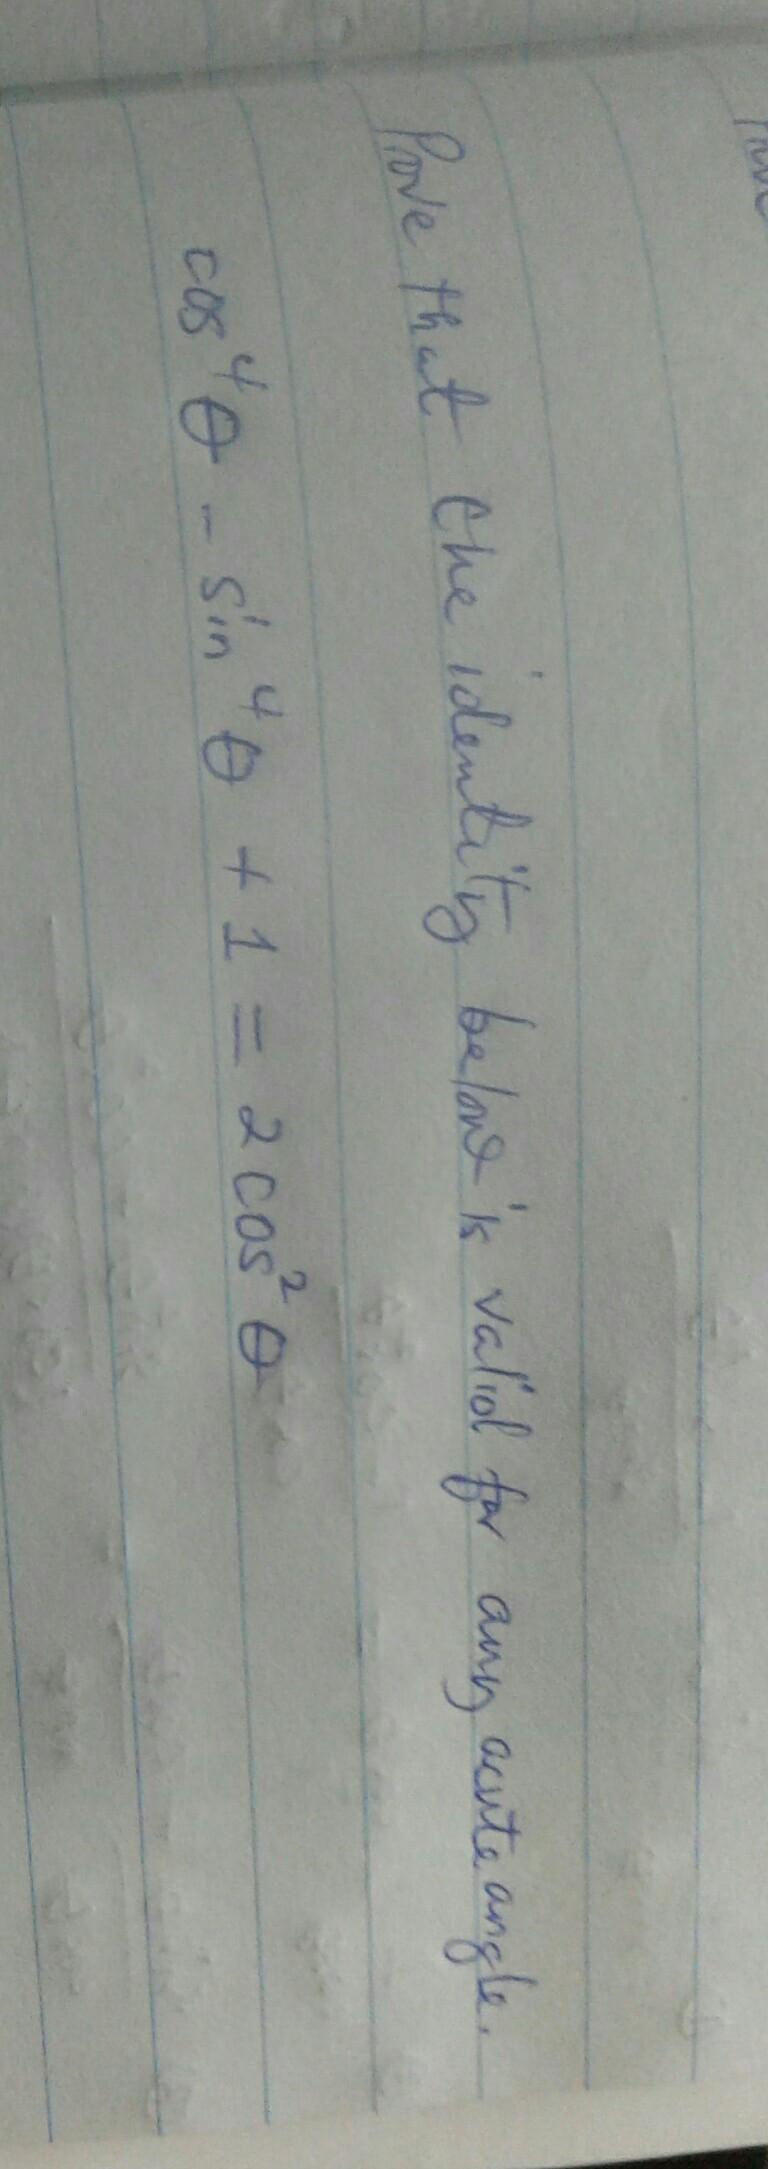 Prove that the identity below is valid for any acute angle.
cos⁴θ - sin⁴θ + 1 = 2 cos²θ